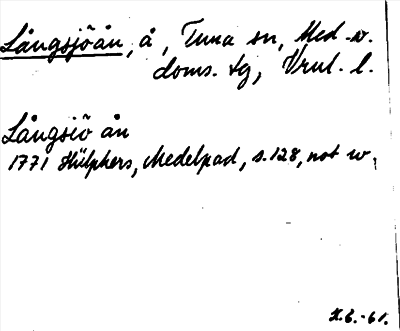 Långsjöån, å, Tuna sn, Med. v.
doms. tg, Vrul. l.
Långsiö ån
1771 Hülphers, Medelpad, s. 128, not w,
-61.